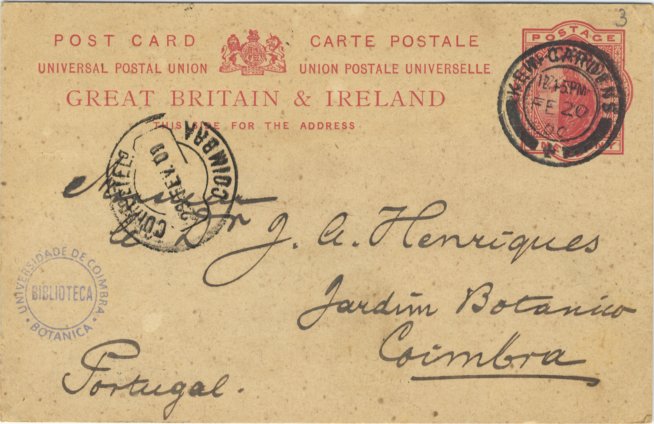 3
POST CARD CARTE POSTALE
UNIVERSAL POSTAL UNION UNION POSTALE UNIVERSELLE
GREAT BRITAIN & IRELAND
THIS SIDE FOR THE ADDRESS
POSTAGE
KEW GARDENS
12.45PM
FE 20
COIMBRA
FEV 00
J. A. Henriques
Jardim Botanico
Coimbra
Portugal.
UNIVERSIDADE DE COIMBRA
BIBLIOTECA
BOTANICA